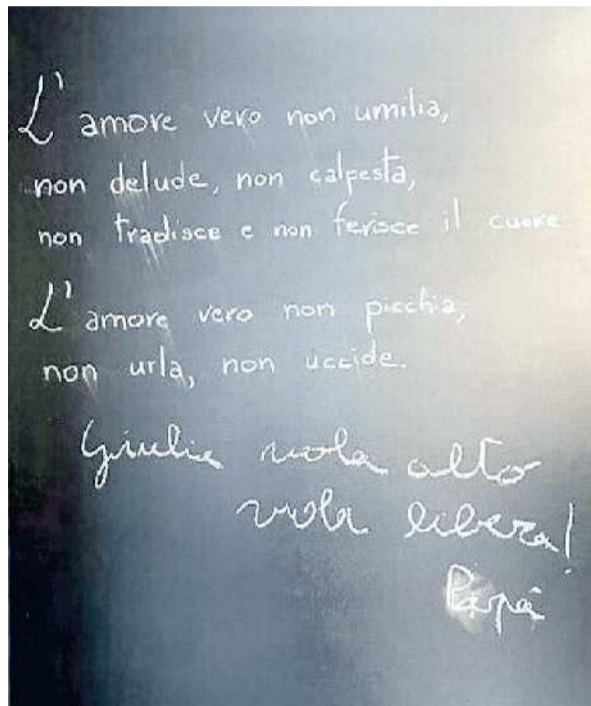 L'amore vero non umilia,
non delude, non calpesta,
non tradisce e non ferisce il cuore
L'amore vero non picchia,
non urla, non uccide.
Giulia vola alto
vola libera!
Papà